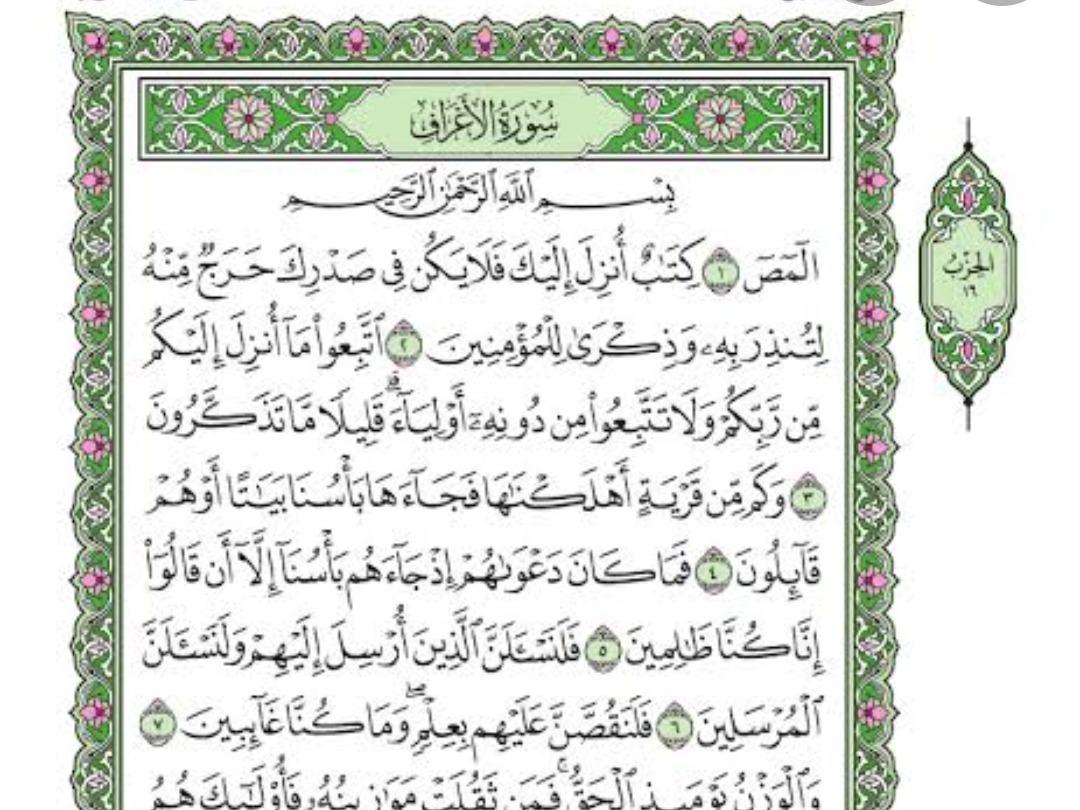 سُورَةُ الأَعْرَافِ
بِسْمِ ٱللَّهِ ٱلرَّحْمَٰنِ ٱلرَّحِيمِ
الٓمٓصٓ ١ كِتَٰبٌ أُنزِلَ إِلَيْكَ فَلَا يَكُن فِى صَدْرِكَ حَرَجٌ مِّنْهُ
لِتُنذِرَ بِهِۦ وَذِكْرَىٰ لِلْمُؤْمِنِينَ ٢ ٱتَّبِعُوا۟ مَآ أُنزِلَ إِلَيْكُم
مِّن رَّبِّكُمْ وَلَا تَتَّبِعُوا۟ مِن دُونِهِۦٓ أَوْلِيَآءَ ۗ قَلِيلًا مَّا تَذَكَّرُونَ
٣ وَكَم مِّن قَرْيَةٍ أَهْلَكْنَٰهَا فَجَآءَهَا بَأْسُنَا بَيَٰتًا أَوْ هُمْ
قَآئِلُونَ ٤ فَمَا كَانَ دَعْوَىٰهُمْ إِذْ جَآءَهُم بَأْسُنَآ إِلَّآ أَن قَالُوٓا۟
إِنَّا كُنَّا ظَٰلِمِينَ ٥ فَلَنَسْـَٔلَنَّ ٱلَّذِينَ أُرْسِلَ إِلَيْهِمْ وَلَنَسْـَٔلَنَّ
ٱلْمُرْسَلِينَ ٦ فَلَنَقُصَّنَّ عَلَيْهِم بِعِلْمٍ ۖ وَمَا كُنَّا غَآئِبِينَ ٧
وَٱلْوَزْنُ يَوْمَئِذٍ ٱلْحَقُّ ۚ فَمَن ثَقُلَتْ مَوَٰزِينُهُۥ فَأُو۟لَٰٓئِكَ هُمُ
الحِزْبُ
١٦